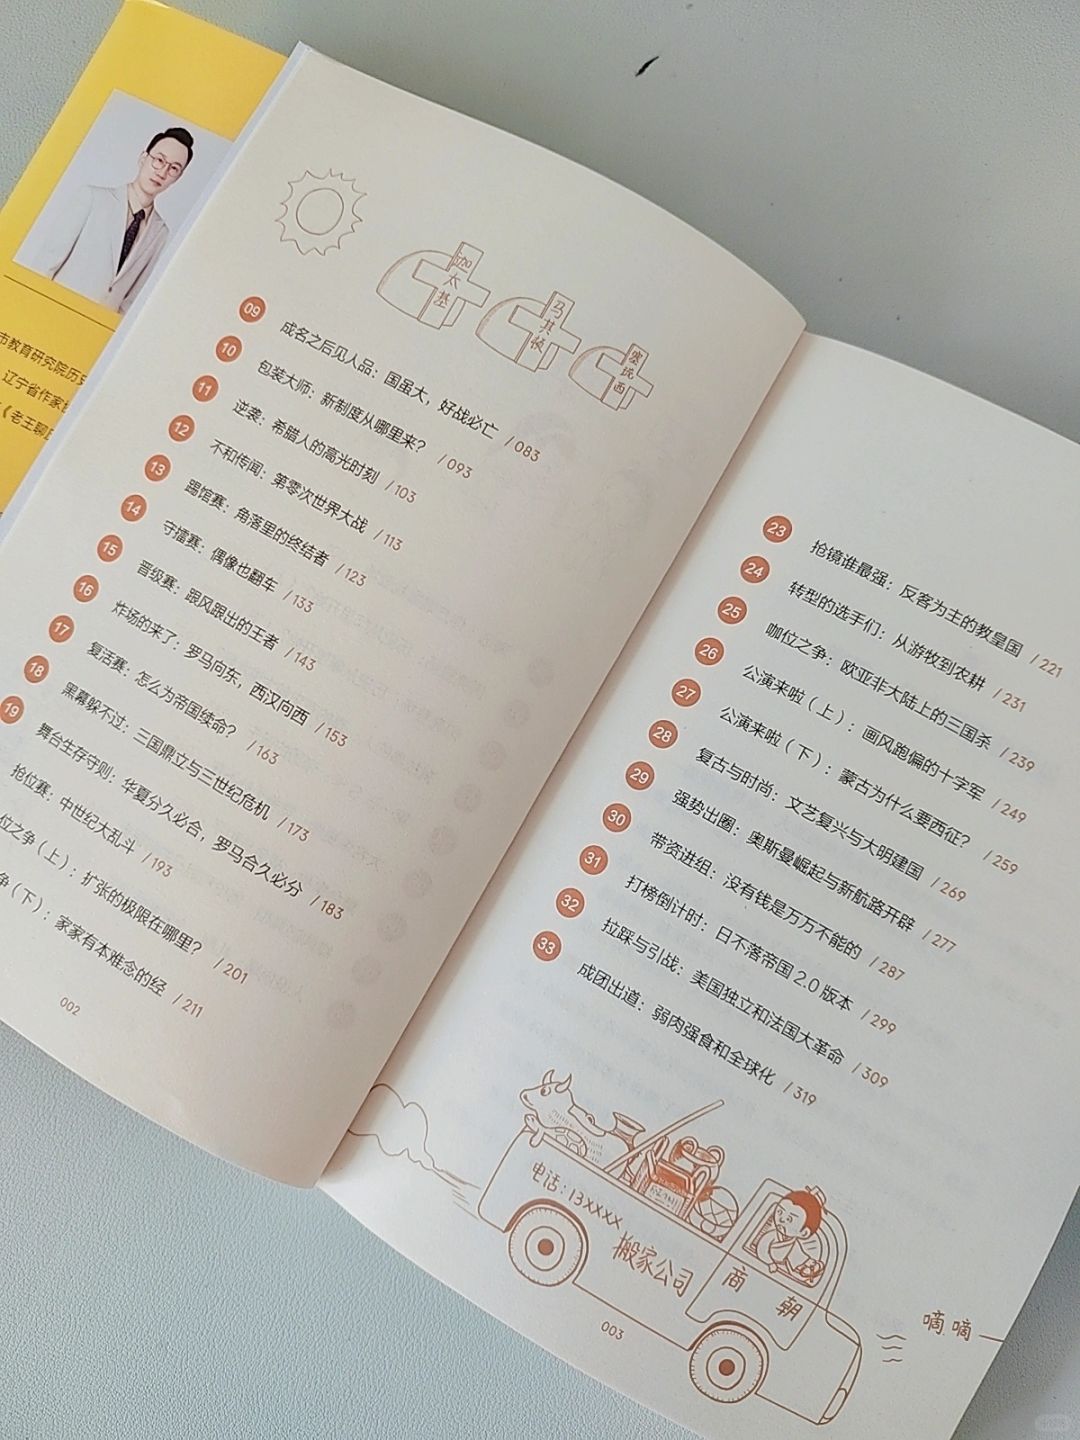 市教育研究院历史
辽宁省作家
《老王聊
迦太基
马其顿
塞琉西
09 成名之后见人品：国虽大，好战必亡 /083
10 包装大师：新制度从哪里来？ /093
11 逆袭：希腊人的高光时刻 /103
12 不和传闻：第零次世界大战 /113
13 踢馆赛：角落里的终结者 /123
14 守擂赛：偶像也翻车 /133
15 晋级赛：跟风跟出的王者 /143
16 炸场的来了：罗马向东，西汉向西 /153
17 复活赛：怎么为帝国续命？ /163
18 黑幕躲不过：三国鼎立与三世纪危机 /173
19 舞台生存守则：华夏分久必合，罗马合久必分 /183
抢位赛：中世纪大乱斗 /193
位之争（上）：扩张的极限在哪里？ /201
争（下）：家家有本难念的经 /211
002
23 抢镜谁最强：反客为主的教皇国 /221
24 转型的选手们：从游牧到农耕 /231
25 咖位之争：欧亚非大陆上的三国杀 /239
26 公演来啦（上）：画风跑偏的十字军 /249
27 公演来啦（下）：蒙古为什么要西征？ /259
28 复古与时尚：文艺复兴与大明建国 /269
29 强势出圈：奥斯曼崛起与新航路开辟 /277
30 带资进组：没有钱是万万不能的 /287
31 打榜倒计时：日不落帝国2.0版本 /299
32 拉踩与引战：美国独立和法国大革命 /309
33 成团出道：弱肉强食和全球化 /319
电话：13XXXX
搬家公司
商朝
嘀嘀—
003